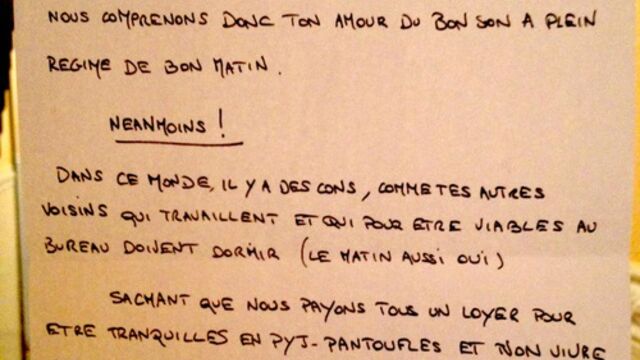 NOUS COMPRENONS DONC TON AMOUR DU BON SON A PLEIN
REGIME DE BON MATIN.
NEANMOINS !
DANS CE MONDE, IL Y A DES CONS, COMME TES AUTRES
VOISINS QUI TRAVAILLENT ET QUI POUR ETRE VIABLES AU
BUREAU DOIVENT DORMIR (LE MATIN AUSSI OUI)
SACHANT QUE NOUS PAYONS TOUS UN LOYER POUR
ETRE TRANQUILLES EN PYJ-PANTOUFLES ET NON VIVRE